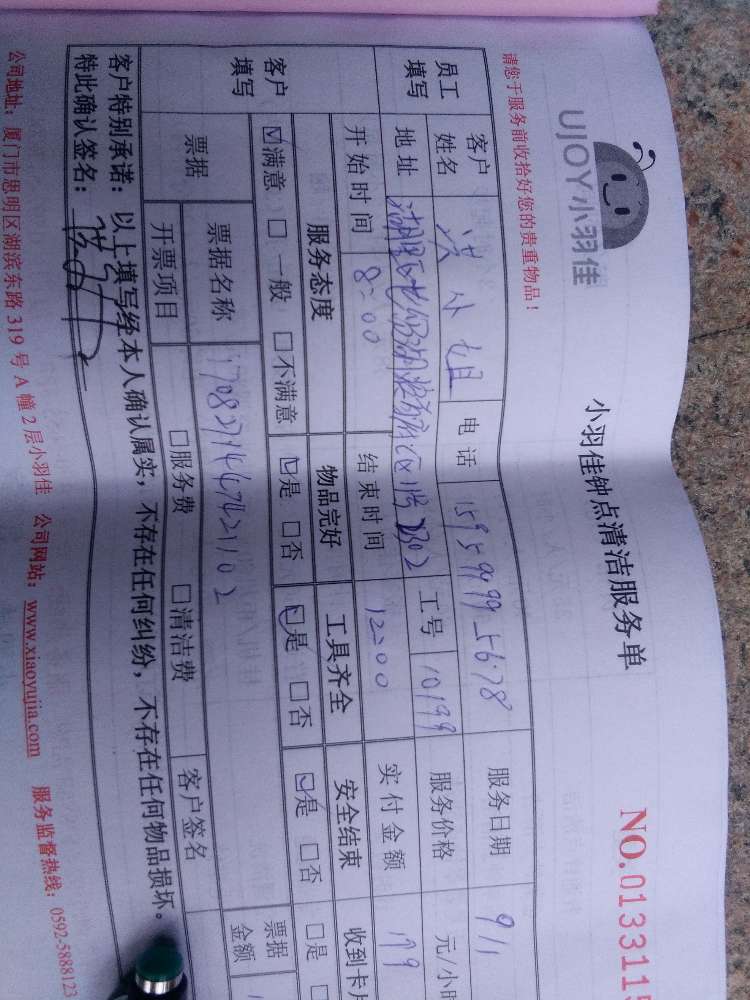 UJOY小羽佳
小羽佳钟点清洁服务单
NO.0133115
请您于服务前收拾好您的贵重物品！
员工填写
客户姓名 洪小姐 电话 15959995678 服务日期 9/1
地址 工号 10199 服务价格 元/小时
开始时间 8:00 结束时间 12:00 实付金额 179
客户填写
服务态度 物品完好 工具齐全 安全结束 收到卡片
☑满意 □一般 □不满意 ☑是 □否 ☑是 □否 ☑是 □否 □是
票据 票据名称 票据金额
开票项目 □服务费 □清洁费 客户签名
客户特别承诺：以上填写经本人确认属实，不存在任何纠纷，不存在任何物品损坏。
特此确认签名：
公司地址：厦门市思明区湖滨东路319号A幢2层小羽佳 公司网站：www.xiaoyujia.com 服务监督热线：0592-5888123